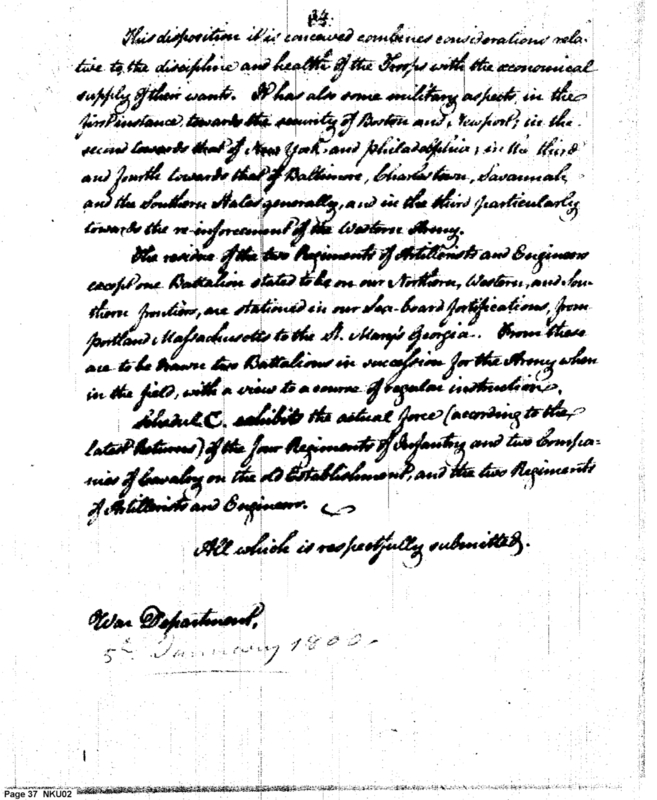 34.
This disposition it is conceived combines considerations rela-
tive to the discipline and health of the Troops with the œconomical
supply of their wants. It has also some military aspects, in the
first instance, towards the security of Boston and Newport; in the
second towards that of New York and philadelphia; in the third
and fourth towards that of Baltimore, Charlestown, Savannah,
and the Southern States generally, and in the third particularly
towards the re-inforcement of the Western Army.
The residue of the two Regiments of Artillerists and Engineers
except one Battalion stated to be on our Northern, Western, and Sou-
thern frontiers, are stationed in our Sea-board fortifications, from
portland Massachusetts to the St. Mary's Georgia. From these
are to be drawn two Battalions in succession for the Army when
in the field, with a view to a course of regular instruction.
Schedule C. exhibits the actual force (according to the
latest Returns) of the four Regiments of Infantry and two Compa-
nies of Cavalry on the old Establishment, and the two Regiments
of Artillerists and Engineers.
All which is respectfully submitted.
War Department,
5th January 1800.
Page 37 NKU02